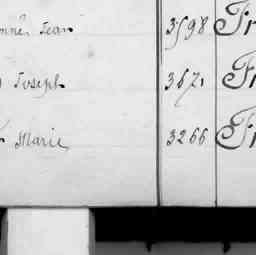 Jean 3598 Fr
Joseph 3671 Fr
Marie 3266 Fr